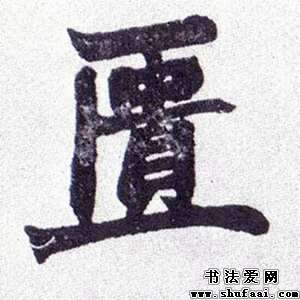 匱
书法爱网
www.shufaai.com